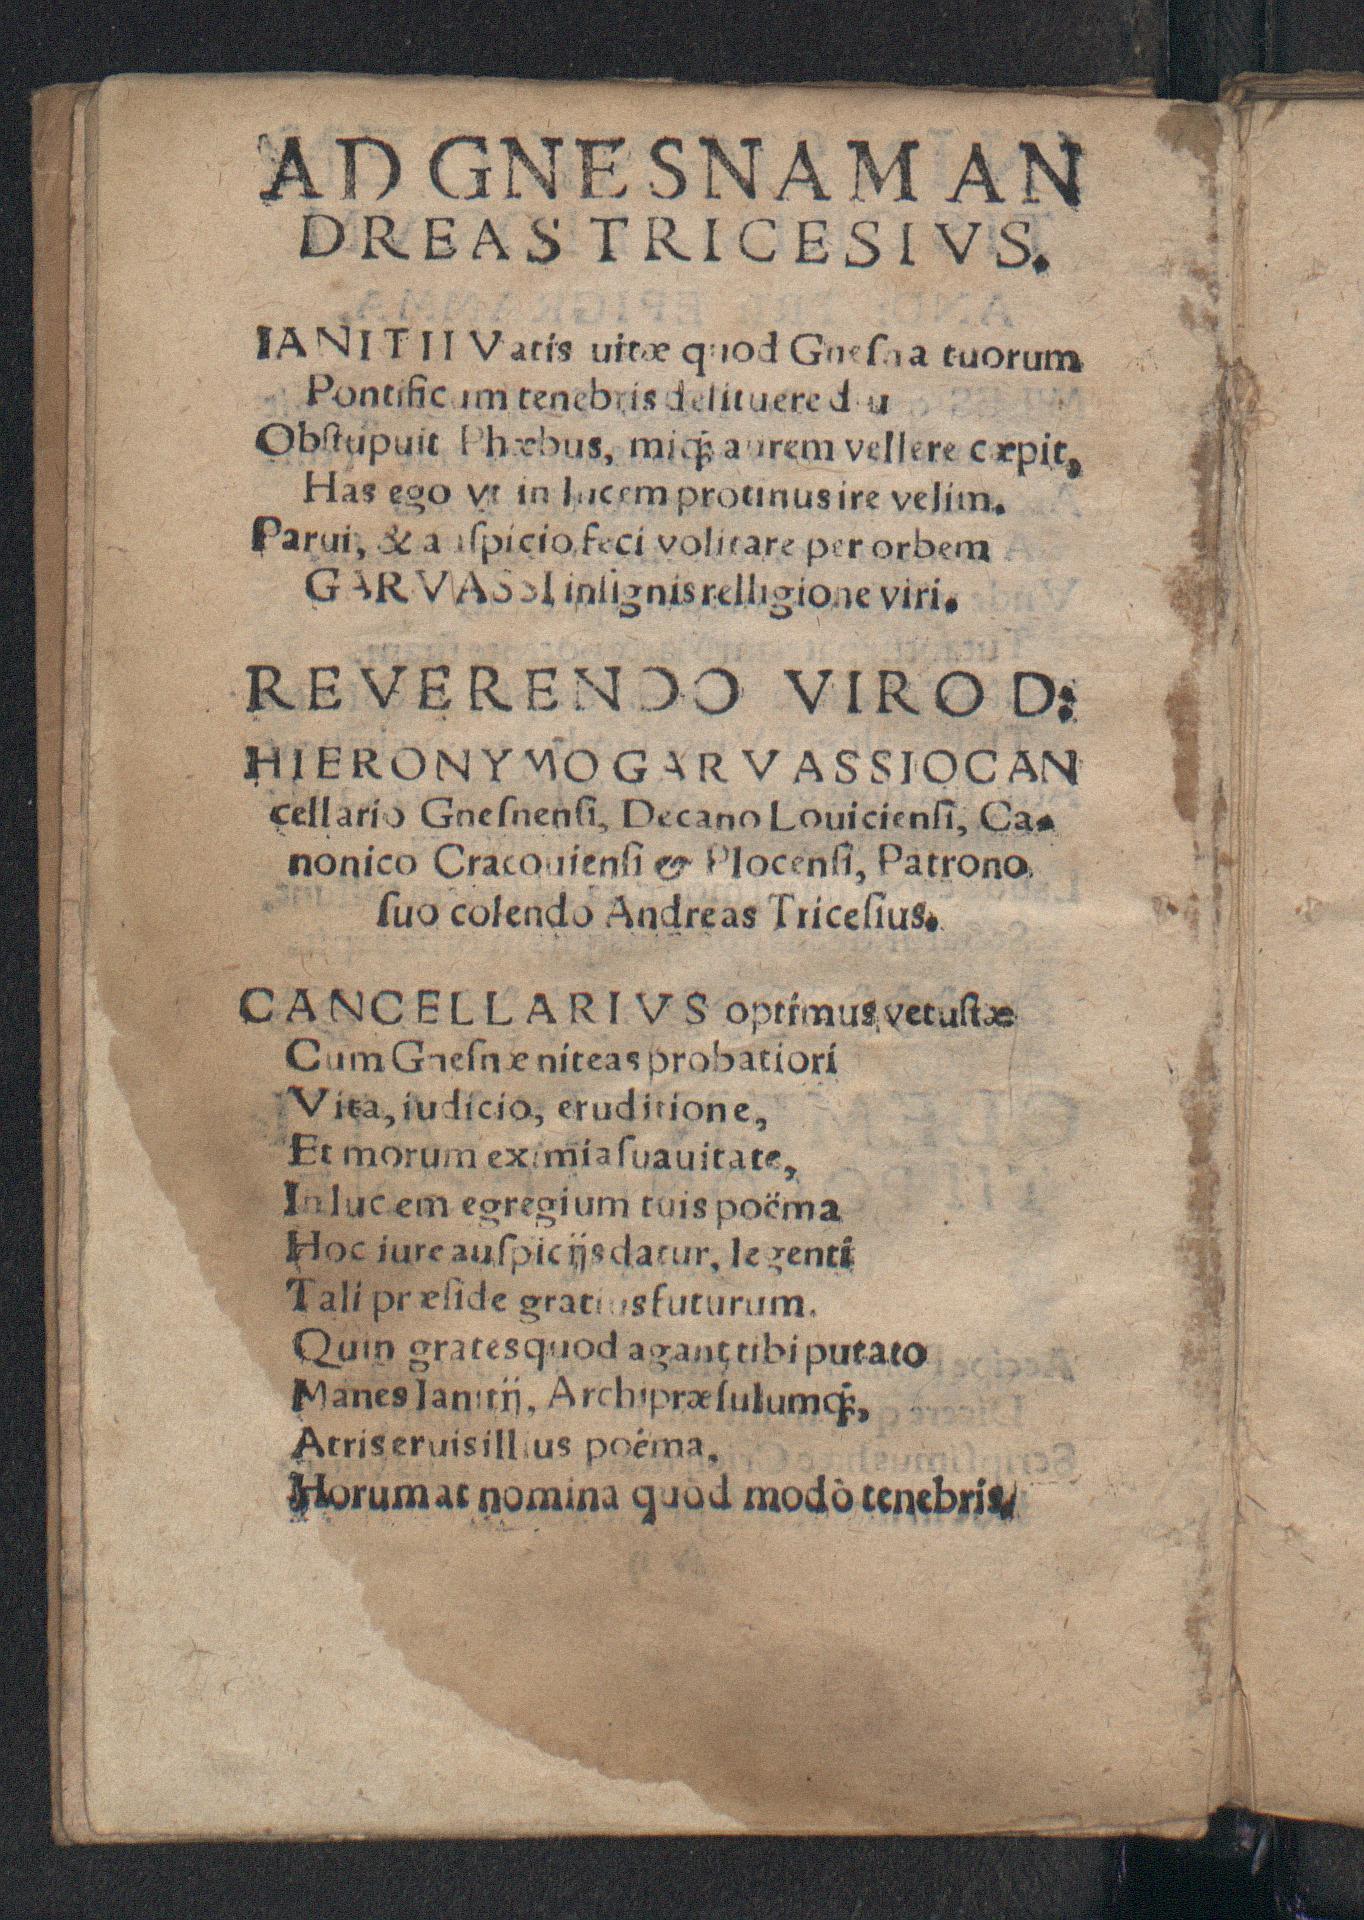 AD GNESNAM AN
DREAS TRICESIVS.
IANITII Vatis uitæ quod Gneſna tuorum
Pontificum tenebris delituere diu
Obſtupuit Phæbus, miq́; aurem vellere cæpit,
Has ego vt in lucem protinus ire velim.
Parui, & auſpicio feci volitare per orbem
GARVASSI inſignis relligione viri.
REVERENDO VIRO D:
HIERONYMO GARVASSIO CAN
cellario Gneſnenſi, Decano Louicienſi, Ca-
nonico Cracouienſi & Plocenſi, Patrono
ſuo colendo Andreas Triceſius.
CANCELLARIVS optimus vetuſtæ
Cum Gneſnæ niteas probatiori
Vita, iudicio, eruditione,
Et morum eximia ſuauitate,
In lucem egregium tuis poëma
Hoc iure auſpicijs datur, legenti
Tali præſide gratius futurum.
Quin grates quod agant tibi putato
Manes Ianitij, Archipræſulumq́;,
Atris eruis illius poëma,
Horum at nomina quòd modò tenebris.